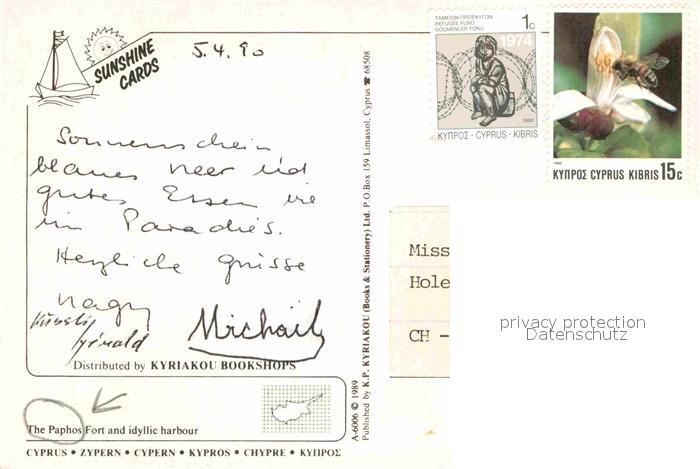 SUNSHINE
CARDS
5.4.90
Sonnenschein
blaues Meer und
gutes Essen wie
im Paradies.
Herzliche grüsse
nagy
Michail
Gérald
Distributed by KYRIAKOU BOOKSHOPS
The Paphos Fort and idyllic harbour
CYPRUS • ZYPERN • CYPERN • KYPROS • CHYPRE • ΚΥΠΡΟΣ
A-6006 © 1989
Published by K.P. KYRIAKOU (Books & Stationery) Ltd. P.O.Box 159 Limassol, Cyprus ☎ 68508
ΤΑΜΕΙΟΝ ΠΡΟΣΦΥΓΩΝ
REFUGEE FUND
GÖÇMENLER FONU
1c
1974
1989
ΚΥΠΡΟΣ - CYPRUS - KIBRIS
1989
ΚΥΠΡΟΣ CYPRUS KIBRIS 15c
Miss
Hole
CH -
privacy protection
Datenschutz